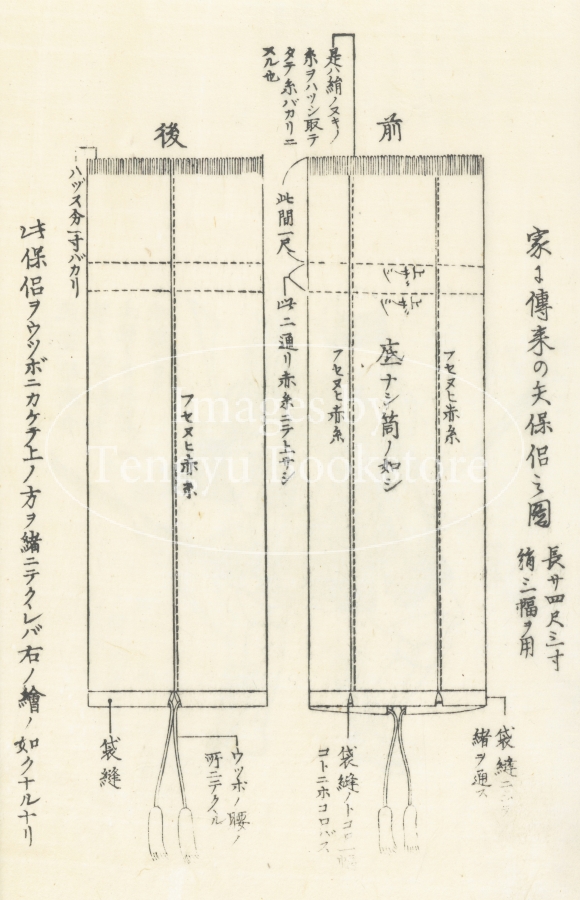 家に傳来の矢保侶之圖
長サ四尺三寸
絹三幅ヲ用
前
是ハ絹ノヌキノ
糸ヲハツシ取テ
タテ糸バカリニ
スル也
フセヌヒ赤糸
底ナシ筒ノ如シ
フセヌヒ赤糸
上サシ
上サシ
袋縫ニ
緒ヲ通ス
袋縫ノトコロ
コトニホコロバス
此間一尺
此二通リ赤糸ニテ上サシ
後
ハヅス分一寸バカリ
フセヌヒ赤糸
ウツボノ腰ノ
所ニテクヽル
袋縫
此保侶ヲウツボニカケテ上ノ方ヲ緒ニテクヽレバ右ノ繪ノ如クナルナリ
Images by
Tengyu Bookstore